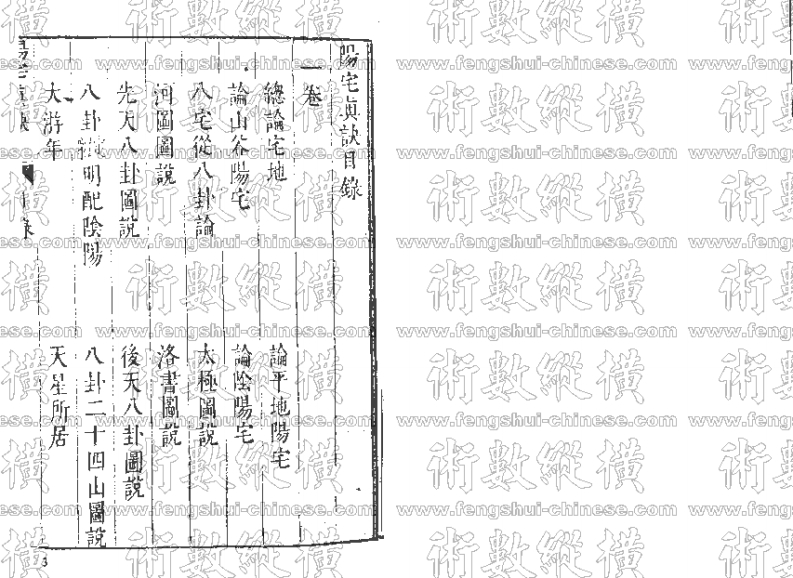 陽宅真訣目錄
一卷
總論宅地 論平地陽宅
論山谷陽宅 論陰陽宅
八宅從八卦論 太極圖說
河圖圖說 洛書圖說
先天八卦圖說 後天八卦圖說
八卦 明配陰陽 八卦二十四山圖說
大游年 天星所居
3
術數縱橫
www.fengshui-chinese.com